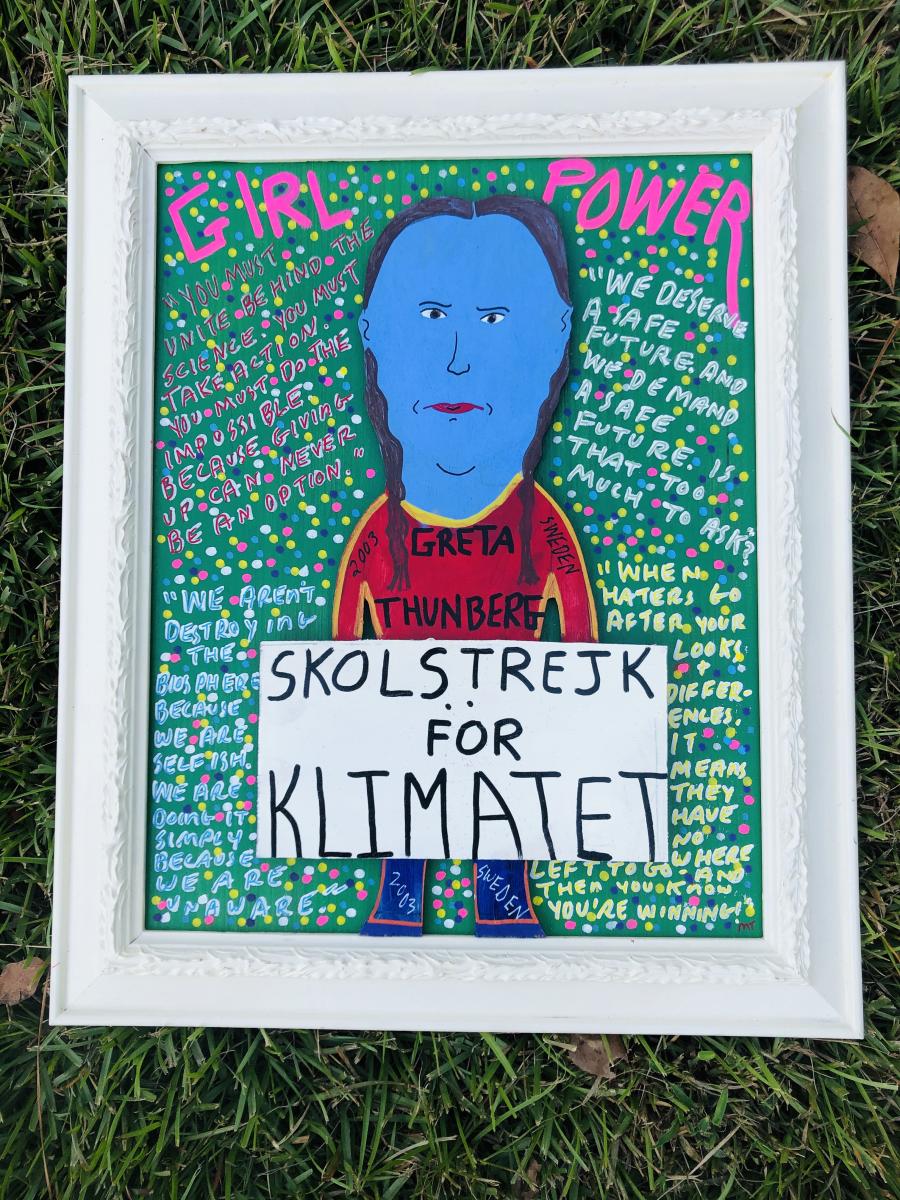 GIRL POWER
"YOU MUST
UNITE BEHIND THE
SCIENCE. YOU MUST
TAKE ACTION.
YOU MUST DO THE
IMPOSSIBLE.
BECAUSE GIVING
UP CAN NEVER
BE AN OPTION."
"WE DESERVE
A SAFE
FUTURE. AND
WE DEMAND
A SAFE
FUTURE. IS
THAT TOO
MUCH TO ASK?"
2003
GRETA
SWEDEN
THUNBERG
"WE AREN'T
DESTROYING
THE
BIOSPHERE
BECAUSE
WE ARE
SELFISH.
WE ARE
DOING IT
SIMPLY
BECAUSE
WE ARE
UNAWARE."
SKOLSTREJK
FÖR
KLIMATET
"WHEN
HATERS GO
AFTER YOUR
LOOKS
+
DIFFER-
ENCES,
IT
MEANS
THEY
HAVE
NO
WHERE
LEFT TO GO. AND
THEN YOU KNOW
YOU'RE WINNING!"
2003
SWEDEN
MT